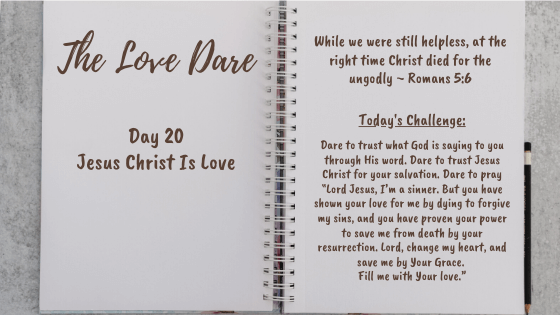 The Love Dare
Day 20
Jesus Christ Is Love
While we were still helpless, at the
right time Christ died for the
ungodly ~ Romans 5:6
Today's Challenge:
Dare to trust what God is saying to you
through His word. Dare to trust Jesus
Christ for your salvation. Dare to pray
"Lord Jesus, I'm a sinner. But you have
shown your love for me by dying to forgive
my sins, and you have proven your power
to save me from death by your
resurrection. Lord, change my heart, and
save me by Your Grace.
Fill me with Your love."